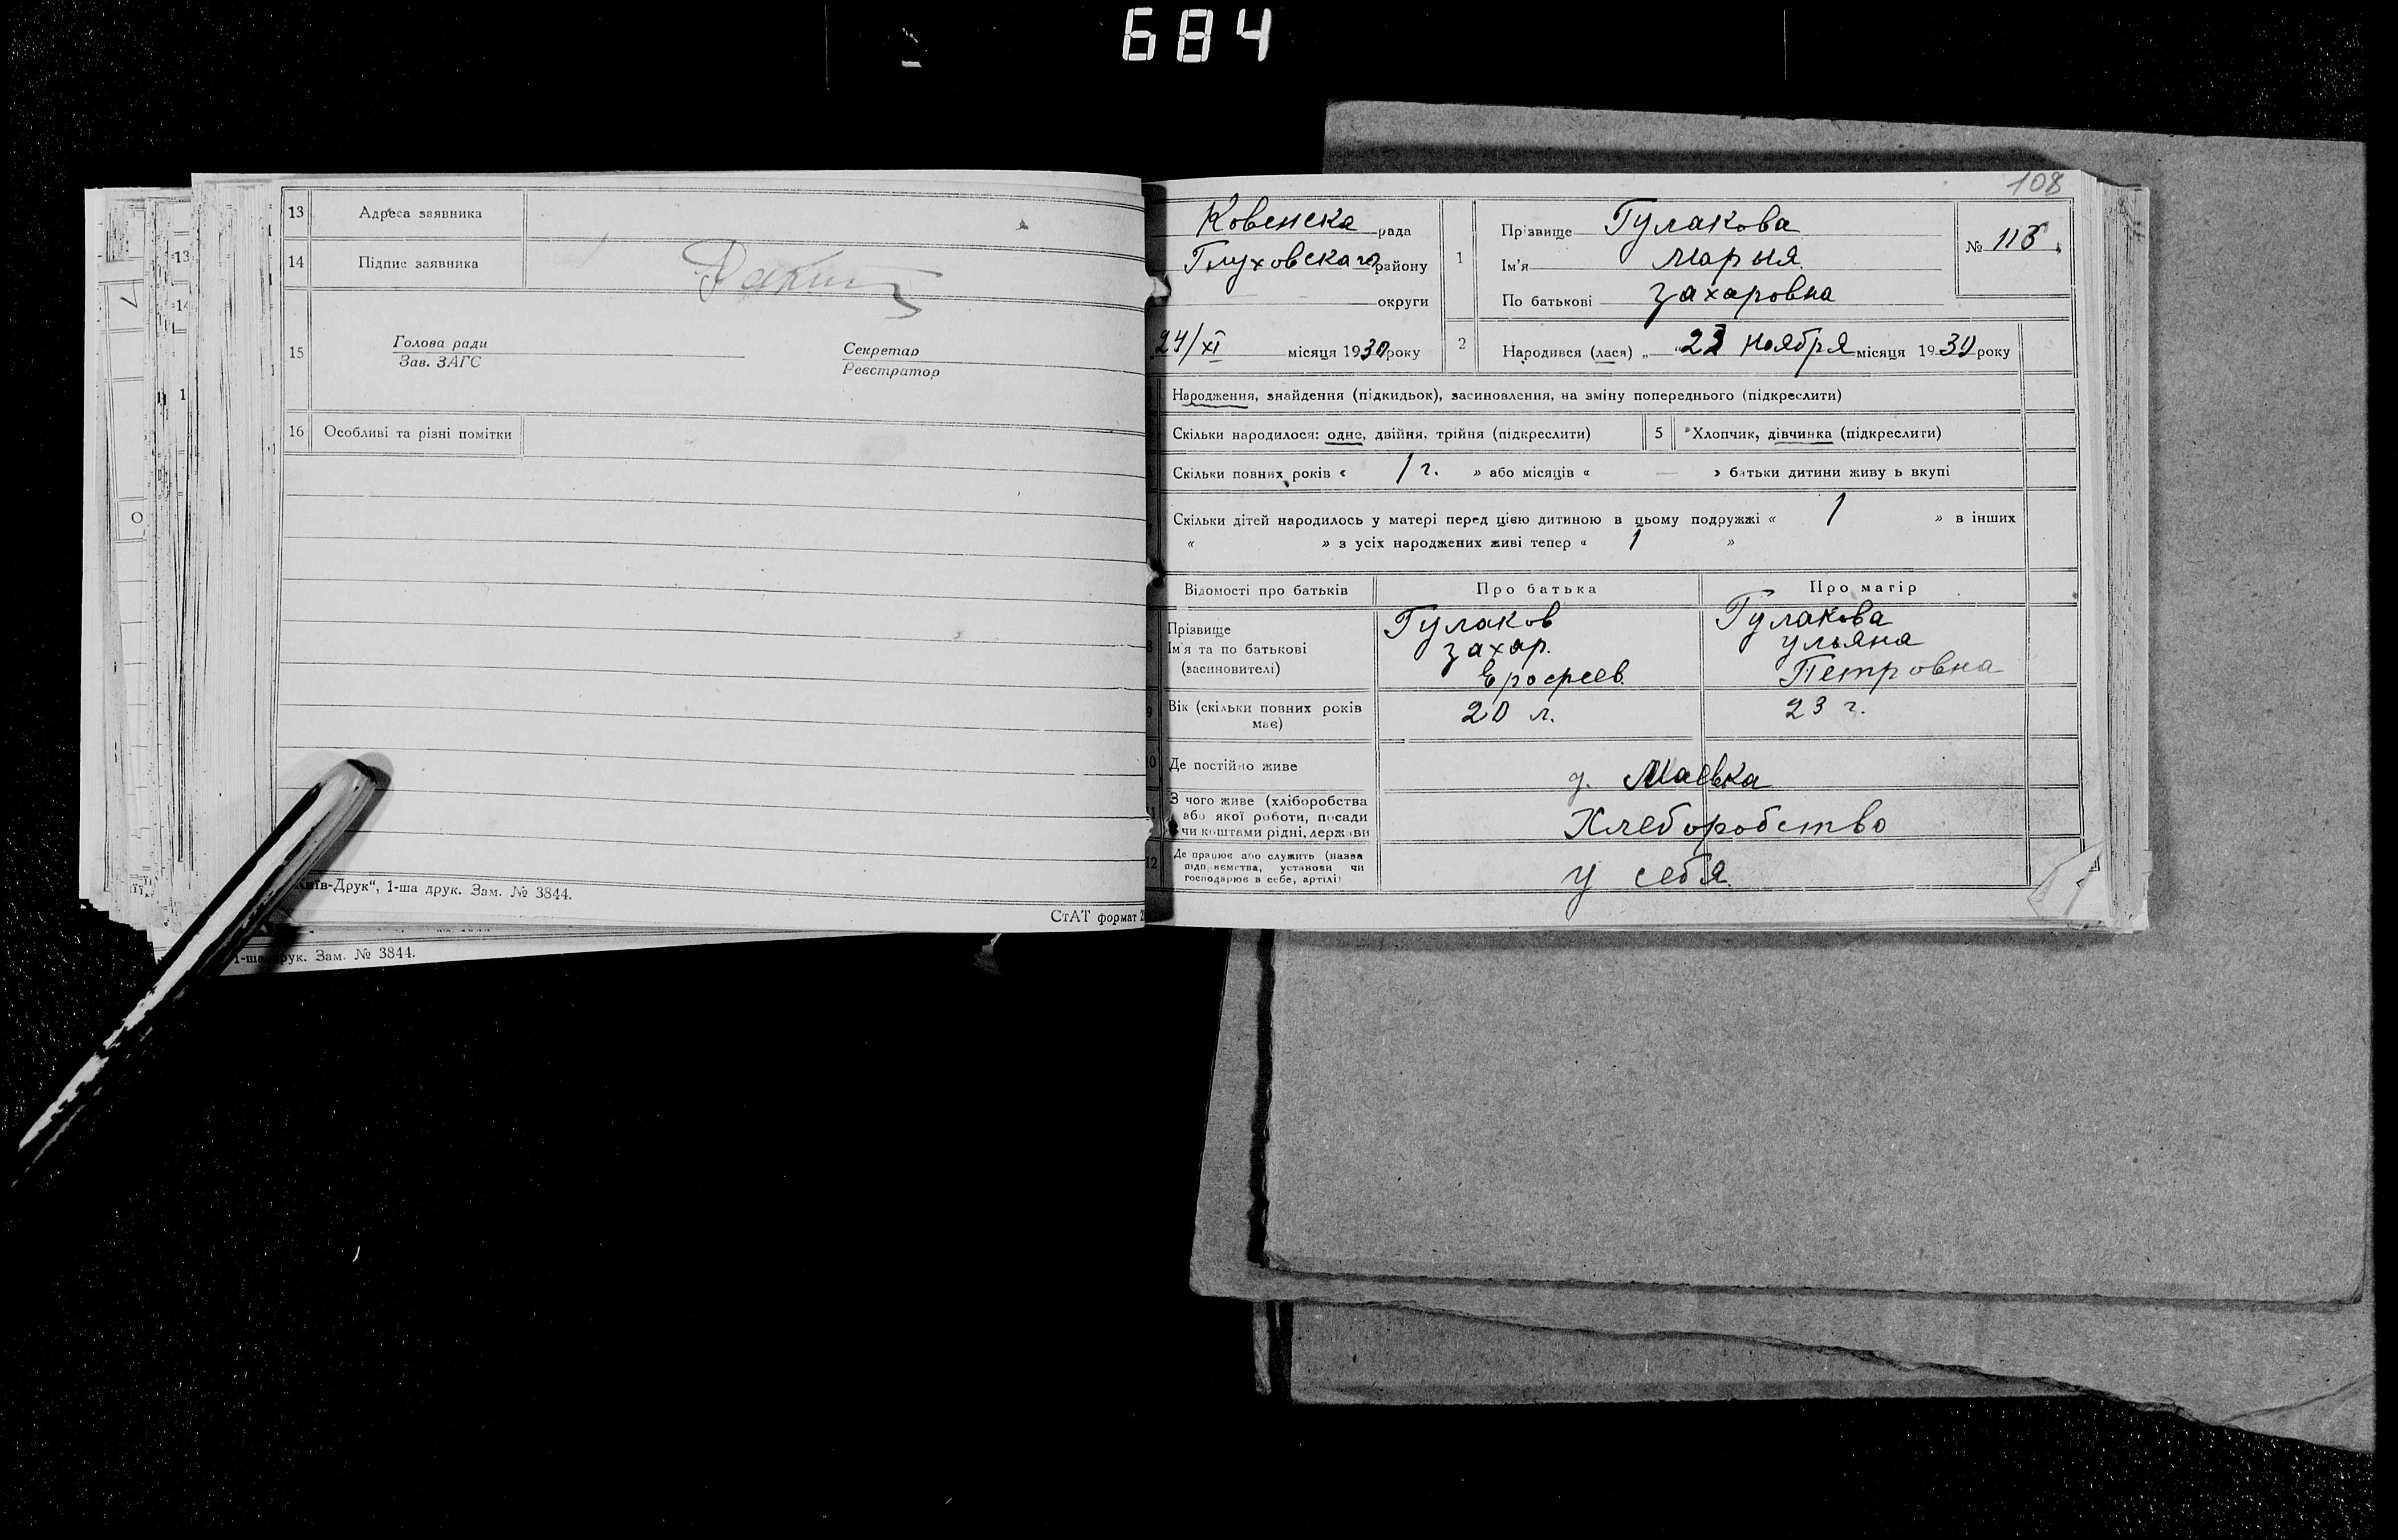 684
13 Адреса заявника
14 Підпис заявника
15 Голова ради
Зав. ЗАГС
Секретар
Реєстратор
16 Особливі та різні помітки
Київ-Друк“, 1-ша друк. Зам. № 3844.
СтАТ формат
1-ша друк. Зам. № 3844.
108
Ковенска рада
Глуховскаго району
округи
24/XI місяця 1930 року
1 Прізвище Гулакова
Ім'я Марыя
По батькові Захаровна
№ 118
2 Народився (лася) „ 23 Ноября місяця 1930 року
Народження, знайдення (підкидьок), засиновлення, на зміну попереднього (підкреслити)
Скільки народилося: одне, двійня, трійня (підкреслити) 5 Хлопчик, дівчинка (підкреслити)
Скільки повних років « 1 г. » або місяців « — » батьки дитини живу ь вкупі
Скільки дітей народилось у матері перед цією дитиною в цьому подружжі « 1 » в інших
« » з усіх народжених живі тепер « 1 »
Відомості про батьків Про батька Про матір
8 Прізвище
Ім'я та по батькові
(засиновителі)
Гулаков
Захар.
Ерофеев.
Гулакова
Ульяна
Петровна
9 Вік (скільки повних років має) 20 л. 23 г.
10 Де постійно живе д. Маевка
11 З чого живе (хліборобства
або якої роботи, посади
чи коштами рідні, держави
Хлеборобство
12 Де працює або служить (назва
підприємства, установи чи
господарює в себе, артілі)
У себя.